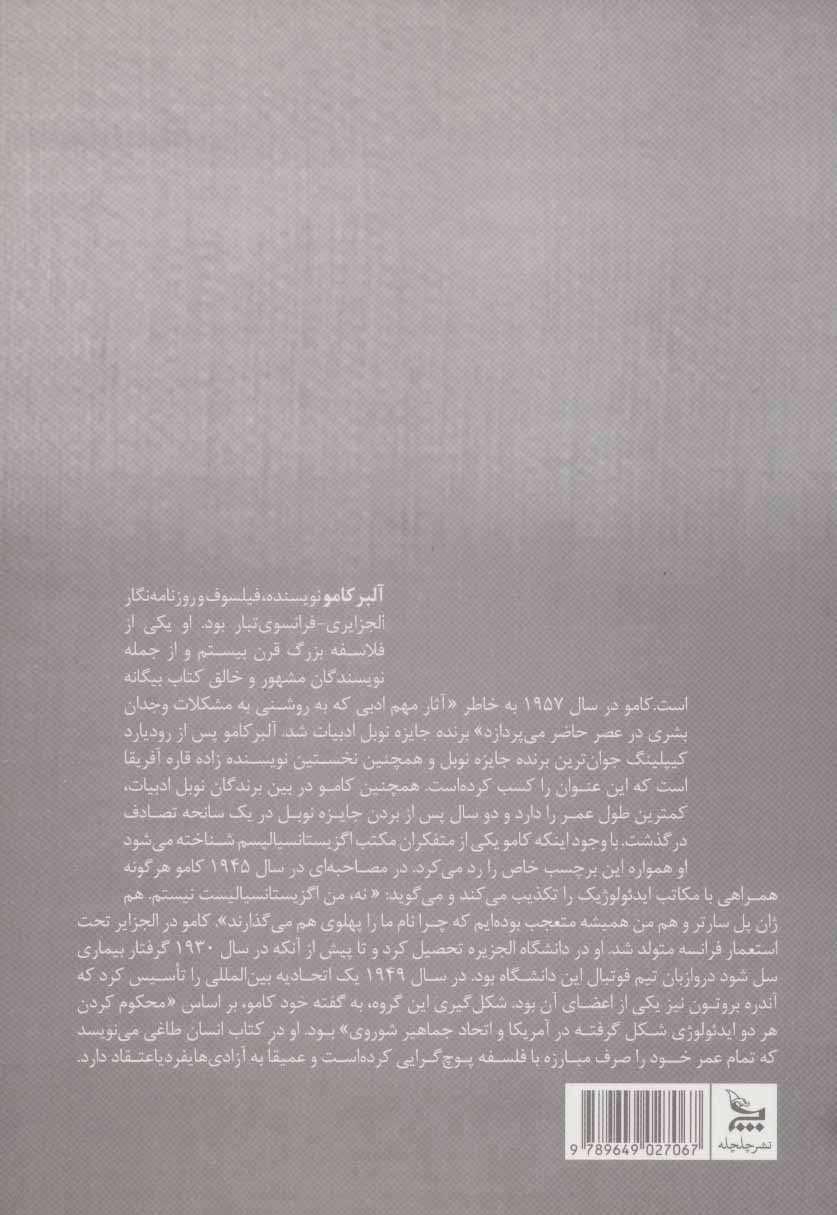 آلبر کامو نویسنده، فیلسوف و روزنامه‌نگار
الجزایری-فرانسوی‌تبار بود. او یکی از
فلاسفه بزرگ قرن بیستم و از جمله
نویسندگان مشهور و خالق کتاب بیگانه
است.کامو در سال ۱۹۵۷ به خاطر «آثار مهم ادبی که به روشنی به مشکلات وجدان
بشری در عصر حاضر می‌پردازد» برنده جایزه نوبل ادبیات شد. آلبرکامو پس از رودیارد
کیپلینگ جوان‌ترین برنده جایزه نوبل و همچنین نخستین نویسنده زاده قاره آفریقا
است که این عنوان را کسب کرده‌است. همچنین کامو در بین برندگان نوبل ادبیات،
کمترین طول عمر را دارد و دو سال پس از بردن جایزه نوبل در یک سانحه تصادف
درگذشت. با وجود اینکه کامو یکی از متفکران مکتب اگزیستانسیالیسم شناخته می‌شود
او همواره این برچسب خاص را رد می‌کرد. در مصاحبه‌ای در سال ۱۹۴۵ کامو هرگونه
همراهی با مکاتب ایدئولوژیک را تکذیب می‌کند و می‌گوید: « نه، من اگزیستانسیالیست نیستم. هم
ژان پل سارتر و هم من همیشه متعجب بوده‌ایم که چرا نام ما را پهلوی هم می‌گذارند». کامو در الجزایر تحت
استعمار فرانسه متولد شد. او در دانشگاه الجزیره تحصیل کرد و تا پیش از آنکه در سال ۱۹۳۰ گرفتار بیماری
سل شود دروازبان تیم فوتبال این دانشگاه بود. در سال ۱۹۴۹ یک اتحادیه بین‌المللی را تأسیس کرد که
آندره بروتون نیز یکی از اعضای آن بود. شکل‌گیری این گروه، به گفته خود کامو، بر اساس «محکوم کردن
هر دو ایدئولوژی شکل گرفته در آمریکا و اتحاد جماهیر شوروی» بود. او در کتاب انسان طاغی می‌نویسد
که تمام عمر خود را صرف مبارزه با فلسفه پوچ‌گرایی کرده‌است و عمیقاً به آزادی‌هایفردیاعتقاد دارد.
نشرچلچله
9 789649 027067